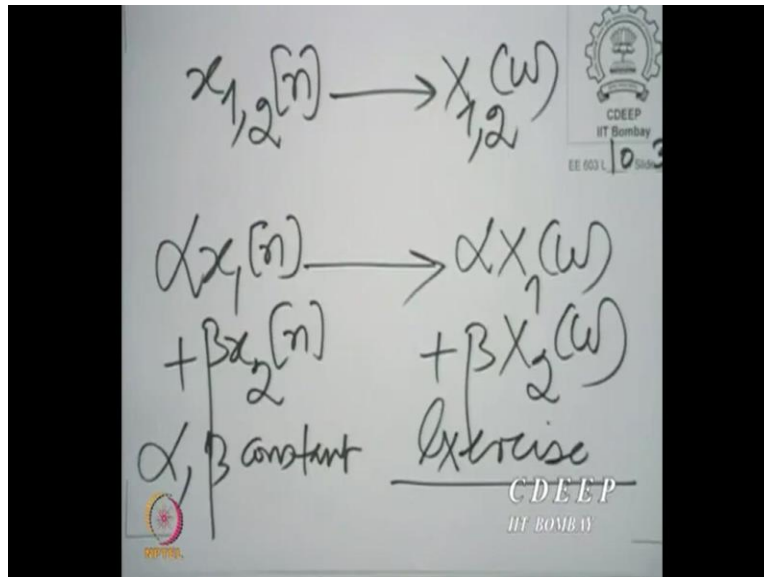 x₁,₂[n] ⟶ X₁,₂(ω)
CDEEP
IIT Bombay
EE 603 L 10 Slide 3
αx₁[n] ⟶ αX₁(ω)
+ βx₂[n] + βX₂(ω)
α, β constant Exercise
CDEEP
IIT BOMBAY
NPTEL